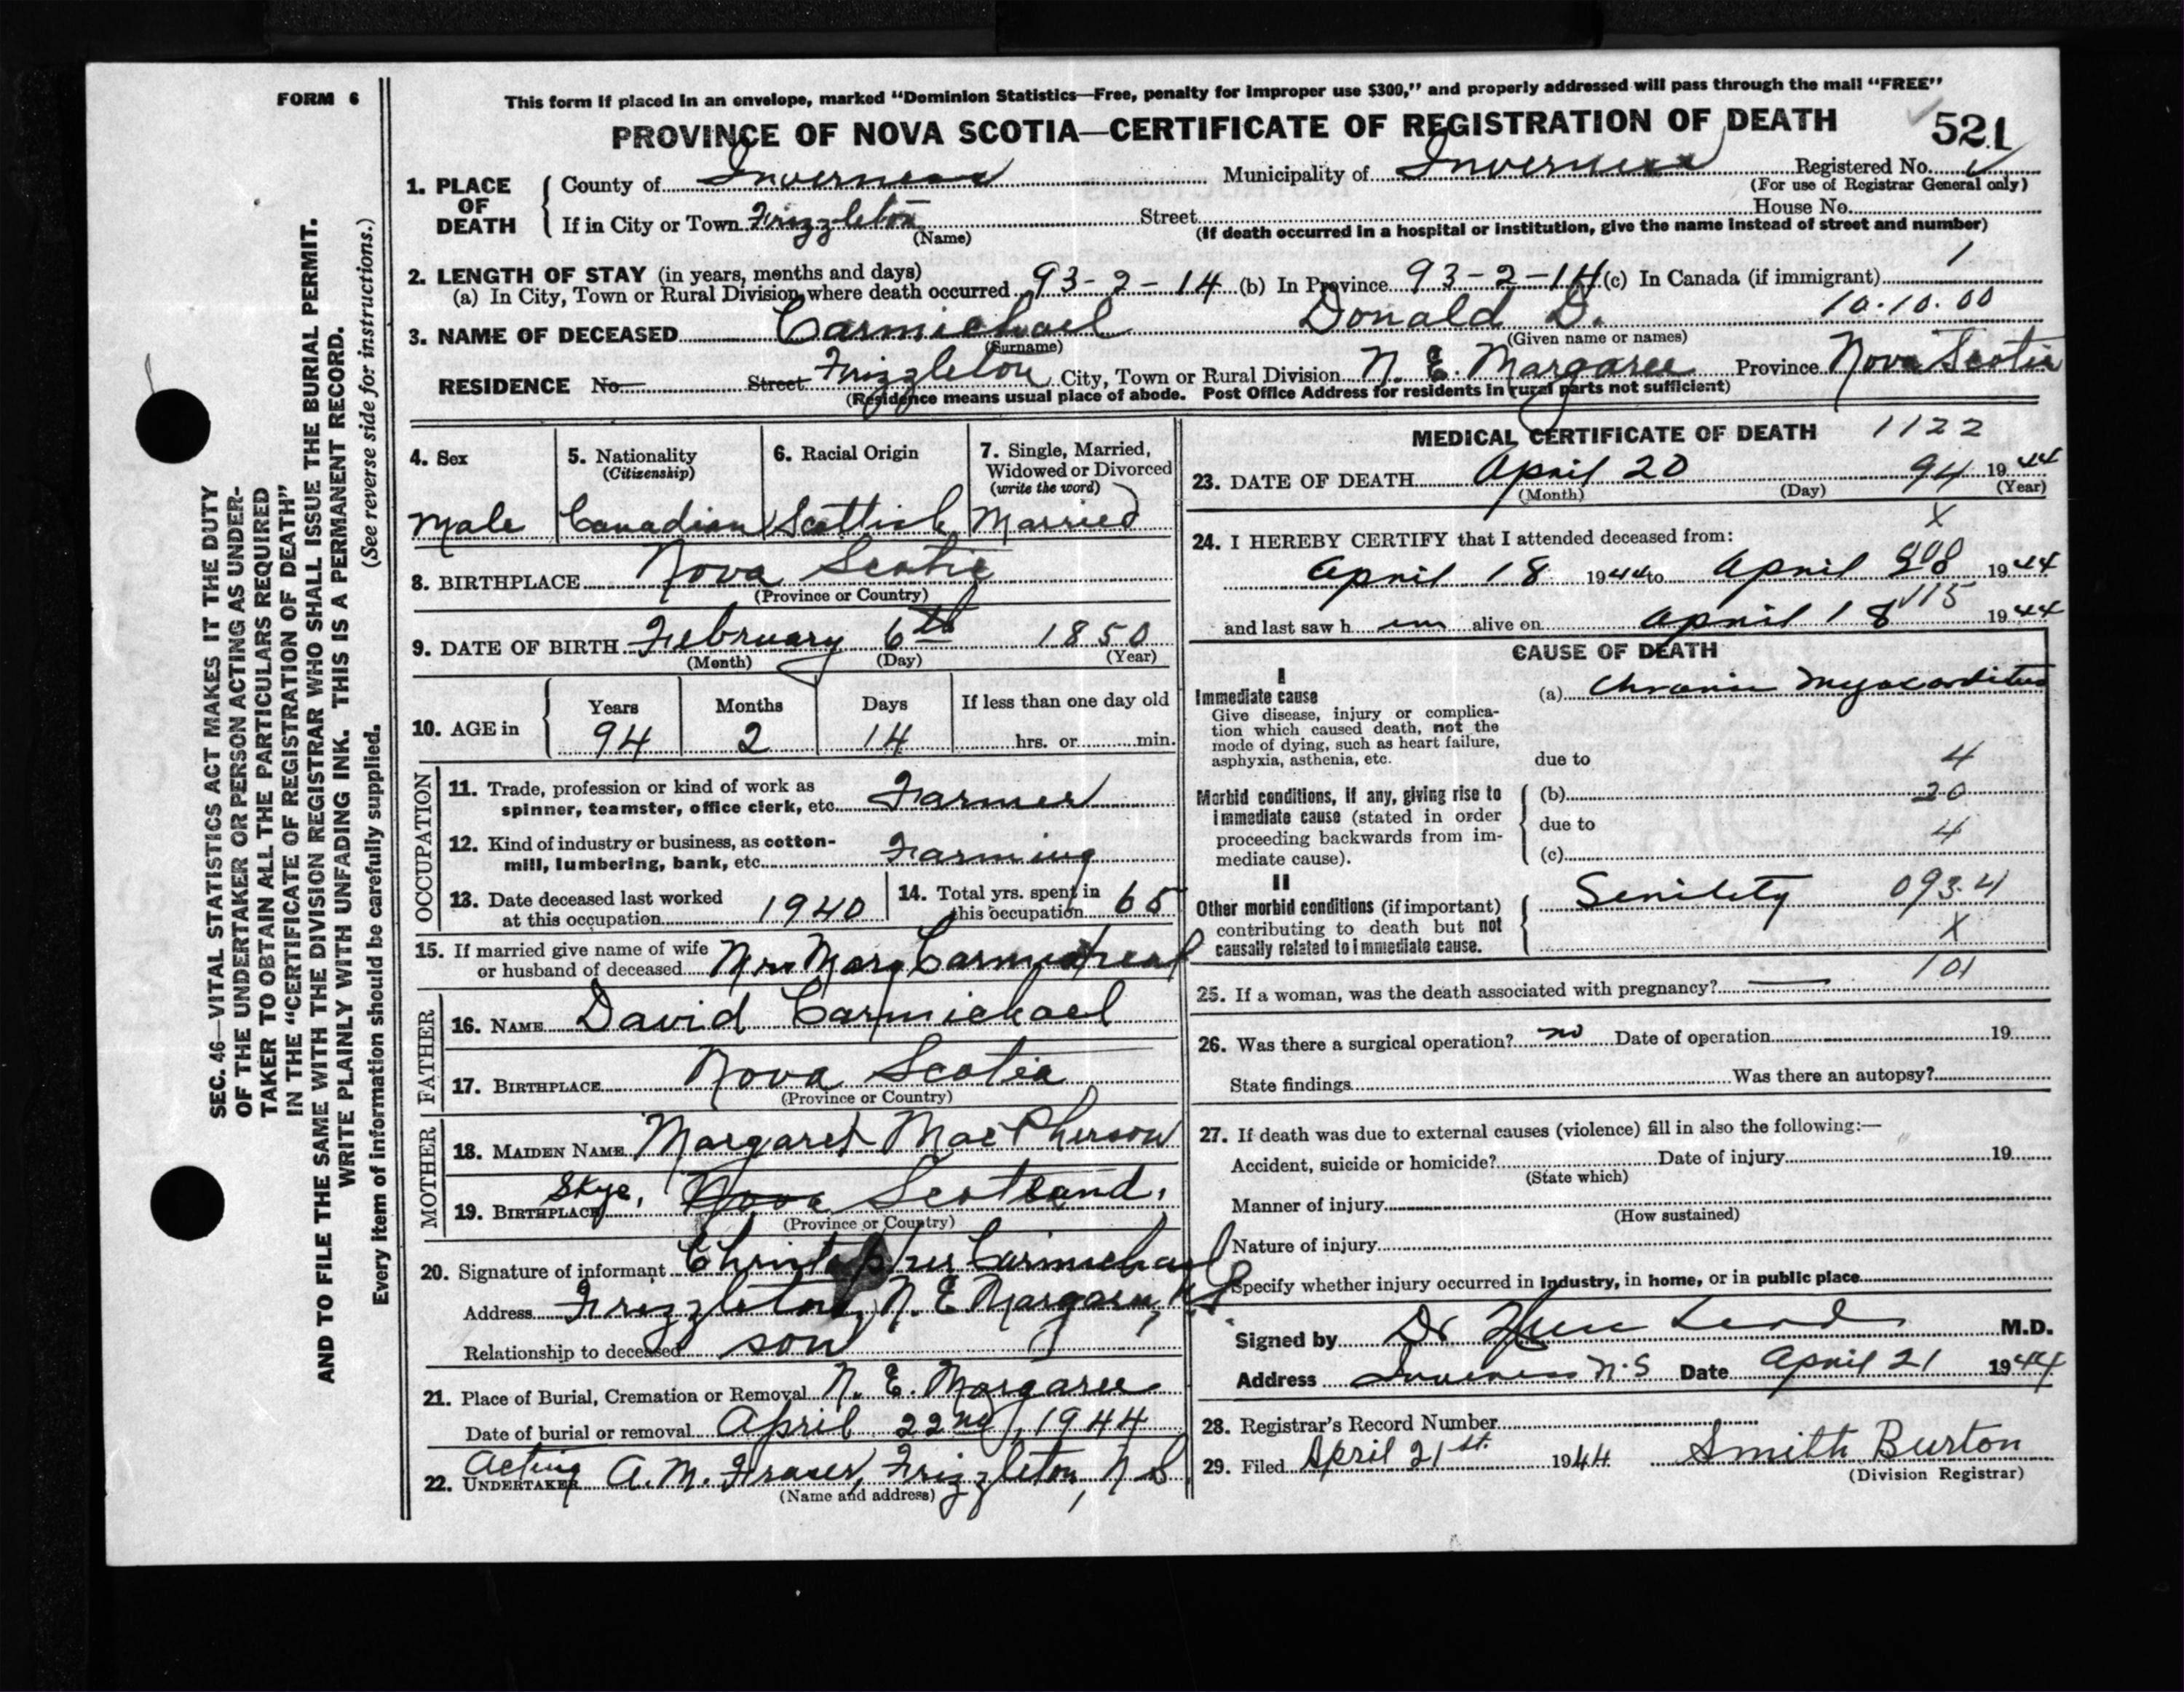 FORM 6
This form if placed in an envelope, marked "Dominion Statistics—Free, penalty for improper use $300," and properly addressed will pass through the mail "FREE"
PROVINCE OF NOVA SCOTIA—CERTIFICATE OF REGISTRATION OF DEATH
521
1. PLACE OF DEATH
County of Inverness Municipality of Inverness Registered No.
(For use of Registrar General only)
If in City or Town Frizzleton Street House No.
(Name) (If death occurred in a hospital or institution, give the name instead of street and number)
2. LENGTH OF STAY (in years, months and days)
(a) In City, Town or Rural Division where death occurred 93-2-14 (b) In Province 93-2-14 (c) In Canada (if immigrant) 1
10.10.00
3. NAME OF DECEASED Carmichael Donald D.
(Surname) (Given name or names)
RESIDENCE No. Street Frizzleton City, Town or Rural Division N. E. Margaree Province Nova Scotia
(Residence means usual place of abode. Post Office Address for residents in rural parts not sufficient)
4. Sex
Male
5. Nationality
(Citizenship)
Canadian
6. Racial Origin
Scottish
7. Single, Married,
Widowed or Divorced
(write the word)
Married
8. BIRTHPLACE Nova Scotia
(Province or Country)
9. DATE OF BIRTH February 6th 1850
(Month) (Day) (Year)
10. AGE in
Years Months Days If less than one day old
94 2 14 hrs. or min.
OCCUPATION
11. Trade, profession or kind of work as
spinner, teamster, office clerk, etc. Farmer
12. Kind of industry or business, as cotton-
mill, lumbering, bank, etc. Farming
13. Date deceased last worked
at this occupation 1940
14. Total yrs. spent in
this occupation 65
15. If married give name of wife
or husband of deceased Mrs Mary Carmichael
FATHER
16. NAME David Carmichael
17. BIRTHPLACE Nova Scotia
(Province or Country)
MOTHER
18. MAIDEN NAME Margaret MacPherson
19. BIRTHPLACE Skye, Nova Scotland.
(Province or Country)
20. Signature of informant Christopher Carmichael
Address Frizzleton, N. E Margaree, N S
Relationship to deceased son
21. Place of Burial, Cremation or Removal N. E. Margaree
Date of burial or removal April 22nd, 1944
Acting
22. UNDERTAKER A. M. Fraser, Frizzleton, N S
(Name and address)
MEDICAL CERTIFICATE OF DEATH 1122
23. DATE OF DEATH April 20 94 1944
(Month) (Day) (Year)
X
24. I HEREBY CERTIFY that I attended deceased from:
April 18 1944 to April 1944
115
and last saw h im alive on April 18 1944
CAUSE OF DEATH
I
Immediate cause
Give disease, injury or complica-
tion which caused death, not the
mode of dying, such as heart failure,
asphyxia, asthenia, etc.
(a) Chronic Myocarditis
due to 4
Morbid conditions, if any, giving rise to
immediate cause (stated in order
proceeding backwards from im-
mediate cause).
(b) 20
due to 4
(c)
II
Other morbid conditions (if important)
contributing to death but not
causally related to immediate cause.
Senility 093.4
X
101
25. If a woman, was the death associated with pregnancy? —
26. Was there a surgical operation? no Date of operation 19
State findings Was there an autopsy?
27. If death was due to external causes (violence) fill in also the following:—
Accident, suicide or homicide? Date of injury 19
(State which)
Manner of injury
(How sustained)
Nature of injury
Specify whether injury occurred in industry, in home, or in public place
Signed by Dr M.D.
Address Inverness N.S Date April 21 1944
28. Registrar's Record Number
29. Filed April 21st. 1944 Smith Burton
(Division Registrar)
SEC. 46—VITAL STATISTICS ACT MAKES IT THE DUTY
OF THE UNDERTAKER OR PERSON ACTING AS UNDER-
TAKER TO OBTAIN ALL THE PARTICULARS REQUIRED
IN THE "CERTIFICATE OF REGISTRATION OF DEATH"
AND TO FILE THE SAME WITH THE DIVISION REGISTRAR WHO SHALL ISSUE THE BURIAL PERMIT.
WRITE PLAINLY WITH UNFADING INK. THIS IS A PERMANENT RECORD.
Every item of information should be carefully supplied. (See reverse side for instructions.)